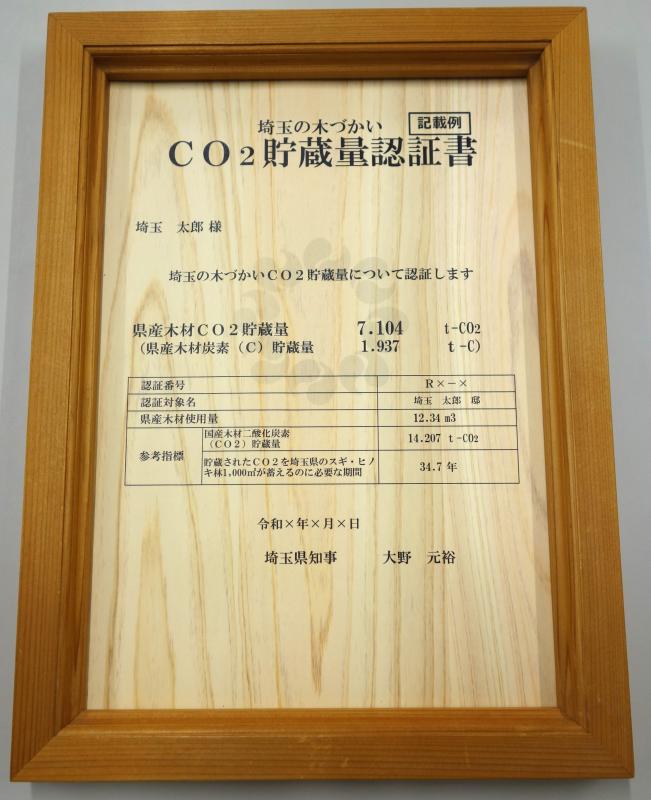 埼玉の木づかい 記載例
CO2貯蔵量認証書
埼玉 太郎 様
埼玉の木づかいCO2貯蔵量について認証します
県産木材CO2貯蔵量 7.104 t-CO2
(県産木材炭素(C)貯蔵量 1.937 t-C)
認証番号 R×-×
認証対象名 埼玉 太郎 邸
県産木材使用量 12.34 m3
参考指標
国産木材二酸化炭素
(CO2)貯蔵量
14.207 t-CO2
貯蔵されたCO2を埼玉県のスギ・ヒノ
キ林1,000㎡が蓄えるのに必要な期間
34.7 年
令和×年×月×日
埼玉県知事 大野 元裕